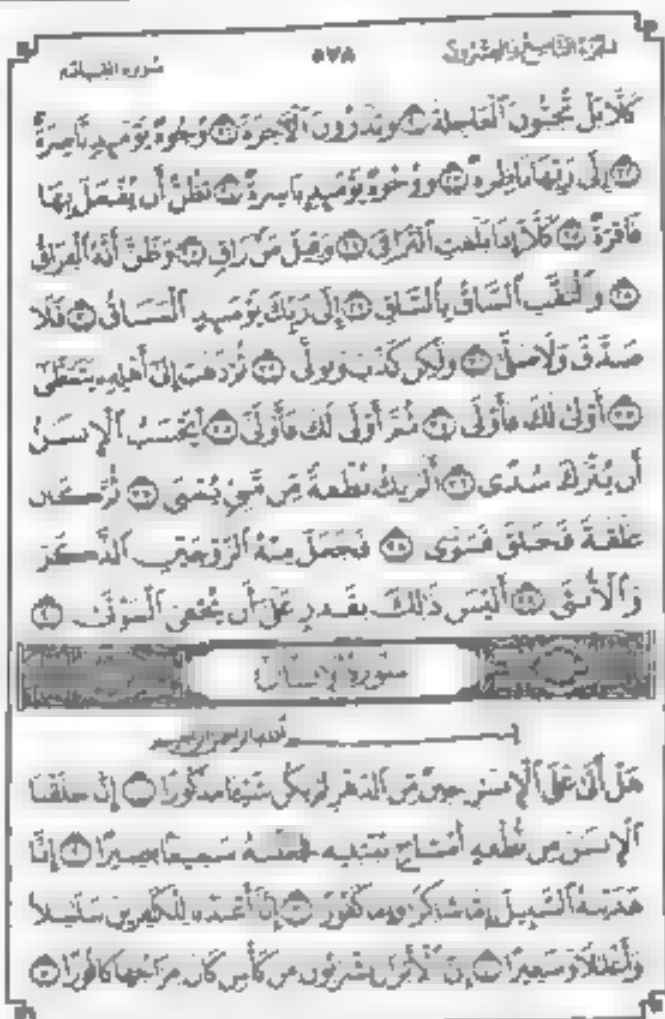 الجزء التاسع والعشرون ٥٧٨ سورة القيامة
كَلَّا بَلْ تُحِبُّونَ ٱلْعَاجِلَةَ ٢٠ وَتَذَرُونَ ٱلْآخِرَةَ ٢١ وُجُوهٌ يَوْمَئِذٍ نَّاضِرَةٌ
٢٢ إِلَىٰ رَبِّهَا نَاظِرَةٌ ٢٣ وَوُجُوهٌ يَوْمَئِذٍ بَاسِرَةٌ ٢٤ تَظُنُّ أَن يُفْعَلَ بِهَا
فَاقِرَةٌ ٢٥ كَلَّا إِذَا بَلَغَتِ ٱلتَّرَاقِيَ ٢٦ وَقِيلَ مَنْ رَاقٍ ٢٧ وَظَنَّ أَنَّهُ ٱلْفِرَاقُ
٢٨ وَٱلْتَفَّتِ ٱلسَّاقُ بِٱلسَّاقِ ٢٩ إِلَىٰ رَبِّكَ يَوْمَئِذٍ ٱلْمَسَاقُ ٣٠ فَلَا
صَدَّقَ وَلَا صَلَّىٰ ٣١ وَلَٰكِن كَذَّبَ وَتَوَلَّىٰ ٣٢ ثُمَّ ذَهَبَ إِلَىٰ أَهْلِهِۦ يَتَمَطَّىٰ
٣٣ أَوْلَىٰ لَكَ فَأَوْلَىٰ ٣٤ ثُمَّ أَوْلَىٰ لَكَ فَأَوْلَىٰ ٣٥ أَيَحْسَبُ ٱلْإِنسَٰنُ
أَن يُتْرَكَ سُدًى ٣٦ أَلَمْ يَكُ نُطْفَةً مِّن مَّنِيٍّ يُمْنَىٰ ٣٧ ثُمَّ كَانَ
عَلَقَةً فَخَلَقَ فَسَوَّىٰ ٣٨ فَجَعَلَ مِنْهُ ٱلزَّوْجَيْنِ ٱلذَّكَرَ
وَٱلْأُنثَىٰ ٣٩ أَلَيْسَ ذَٰلِكَ بِقَٰدِرٍ عَلَىٰ أَن يُحْـِۧيَ ٱلْمَوْتَىٰ ٤٠
سورة الإنسان
بسم الله الرحمن الرحيم
هَلْ أَتَىٰ عَلَى ٱلْإِنسَٰنِ حِينٌ مِّنَ ٱلدَّهْرِ لَمْ يَكُن شَيْـًٔا مَّذْكُورًا ١ إِنَّا خَلَقْنَا
ٱلْإِنسَٰنَ مِن نُّطْفَةٍ أَمْشَاجٍ نَّبْتَلِيهِ فَجَعَلْنَٰهُ سَمِيعًۢا بَصِيرًا ٢ إِنَّا
هَدَيْنَٰهُ ٱلسَّبِيلَ إِمَّا شَاكِرًا وَإِمَّا كَفُورًا ٣ إِنَّآ أَعْتَدْنَا لِلْكَٰفِرِينَ سَلَٰسِلَا۟
وَأَغْلَٰلًا وَسَعِيرًا ٤ إِنَّ ٱلْأَبْرَارَ يَشْرَبُونَ مِن كَأْسٍ كَانَ مِزَاجُهَا كَافُورًا ٥